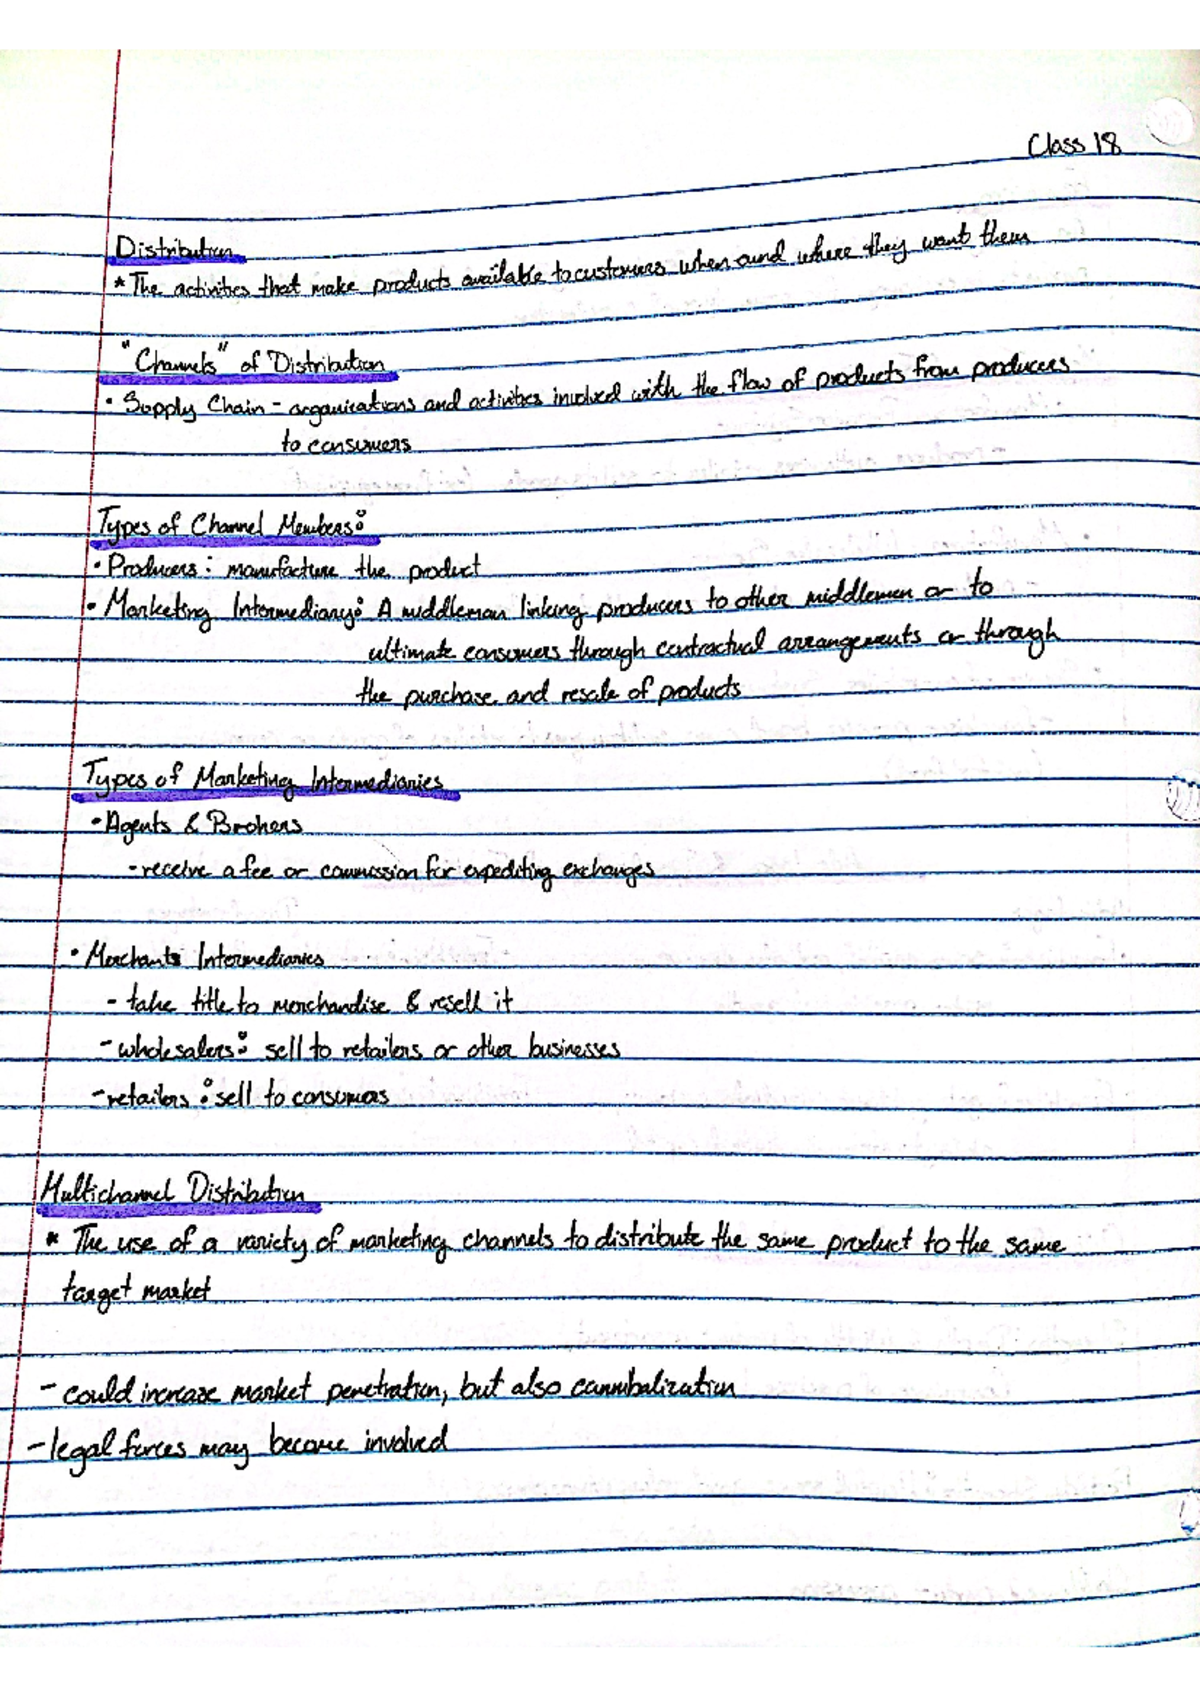 Class 18
Distribution
* The activities that make products available to customers when and where they want them
"Channels" of Distribution
• Supply Chain - organizations and activities involved with the flow of products from producers
to consumers
Types of Channel Members:
• Producers: manufacture the product
• Marketing Intermediary: A middleman linking producers to other middlemen or to
ultimate consumers through contractual arrangements or through
the purchase and resale of products
Types of Marketing Intermediaries
• Agents & Brokers
- receive a fee or commission for expediting exchanges
• Merchants Intermediaries
- take title to merchandise & resell it
- wholesalers: sell to retailers or other businesses
- retailers: sell to consumers
Multichannel Distribution
* The use of a variety of marketing channels to distribute the same product to the same
target market
- could increase market penetration, but also cannibalization
- legal forces may become involved